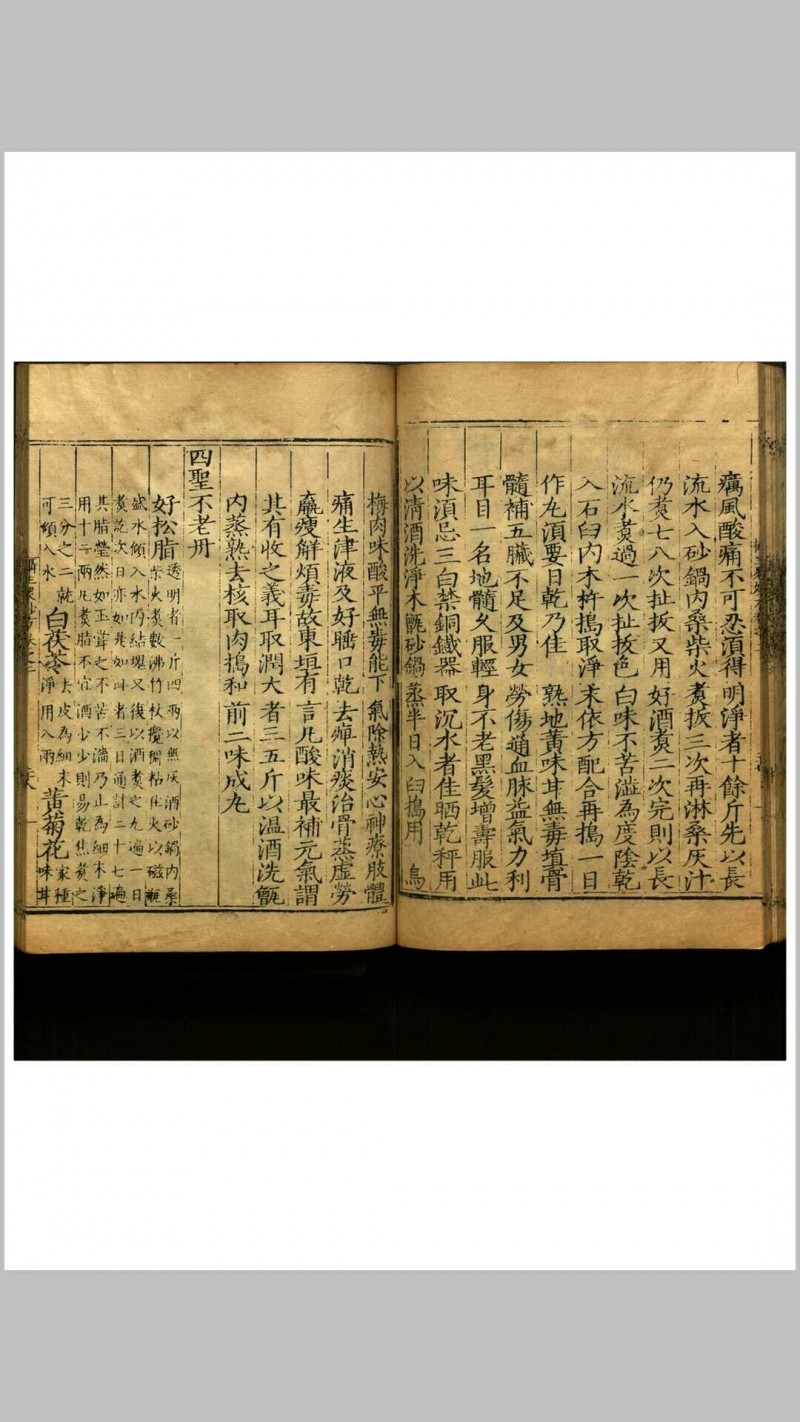 癘風酸痛不可忍須得明淨者十餘斤先以長
流水入砂鍋内桑柴火煑扳三次再淋桑灰汁
仍煑七八次扯扳又用好酒煑二次完則以長
流水煑過一次扯扳色白味不苦澁為度陰乾
入石臼内木杵搗取淨末依方配合再搗一日
作丸須要日乾乃佳　熟地黄味甘無毒填骨
髓補五臓不足及男女勞傷通血脉益氣力利
耳目一名地髓久服輕身不老黑髮增壽服此
味須忌三白禁銅鐵器取沉水者佳晒乾秤用
以清酒洗淨木甑砂鍋蒸半日入臼搗用　烏
梅肉味酸平無毒能下氣除熱安心神療肢體
痛生津液及好睡口乾去痺消痰治骨蒸虚勞
羸瘦解煩毒故東垣有言凡酸味最補元氣謂
其有收之義耳取潤大者三五斤以温酒洗甑
内蒸熟去核取肉搗和前二味成丸
四聖不老丹
好松脂透明者一斤四兩以無灰酒砂鍋内桑
柴火煑數沸竹杖攪稠粘住火以磁甁
盛水傾入水内結塊又後以酒煑之九遍一日
煑訖次日亦如是如此者三日通計二十七遍
其脂瑩然如玉嘗之不苦不澁乃止為細末淨
用十二兩凡煑脂不宜酒少少則易乾焦煑之
三分之二就
可傾入水
白茯苓去皮為細末
淨用八兩
黄菊花家種
味甘